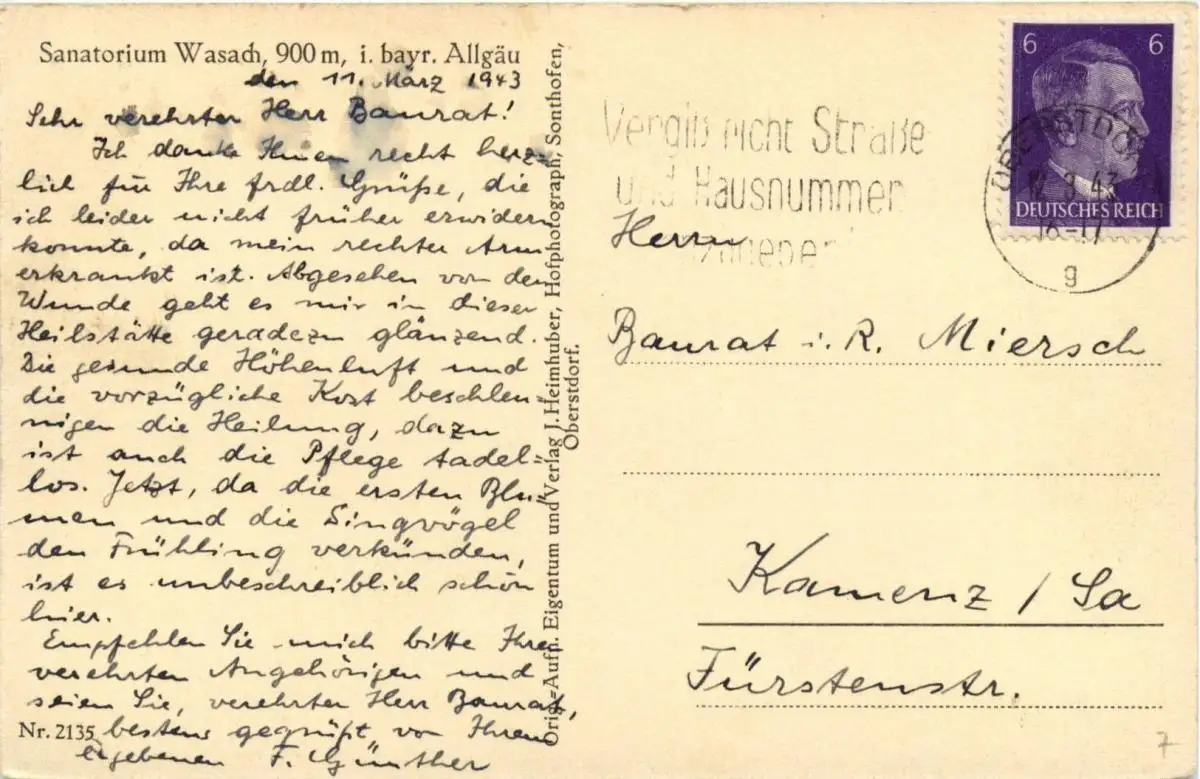 Sanatorium Wasach, 900 m, i. bayr. Allgäu
den 11. März 1943
Sehr verehrter Herr Baurat!
Ich danke Ihnen recht herz-
lich für Ihre frdl. Grüße, die
ich leider nicht früher erwidern
konnte, da mein rechter Arm
erkrankt ist. Abgesehen von der
Wunde geht es mir in dieser
Heilstätte geradezu glänzend.
Die gesunde Höhenluft und
die vorzügliche Kost beschleu-
nigen die Heilung, dazu
ist auch die Pflege tadel-
los. Jetzt, da die ersten Blu-
men und die Singvögel
den Frühling verkünden,
ist es unbeschreiblich schön
hier.
Empfehlen Sie mich bitte Ihren
verehrten Angehörigen und
seien Sie, verehrter Herr Baurat,
bestens gegrüßt von Ihrem
ergebenen F. Günther
Nr. 2135
Orig.-Aufn. Eigentum und Verlag J. Heimhuber, Hofphotograph, Sonthofen,
Oberstdorf.
Vergiß nicht Straße
und Hausnummer
6 6
DEUTSCHES REICH
OBERSTDORF
12.3.43
16-17
g
Herrn
Baurat i. R. Miersch
Kamenz / Sa
Fürstenstr.
7